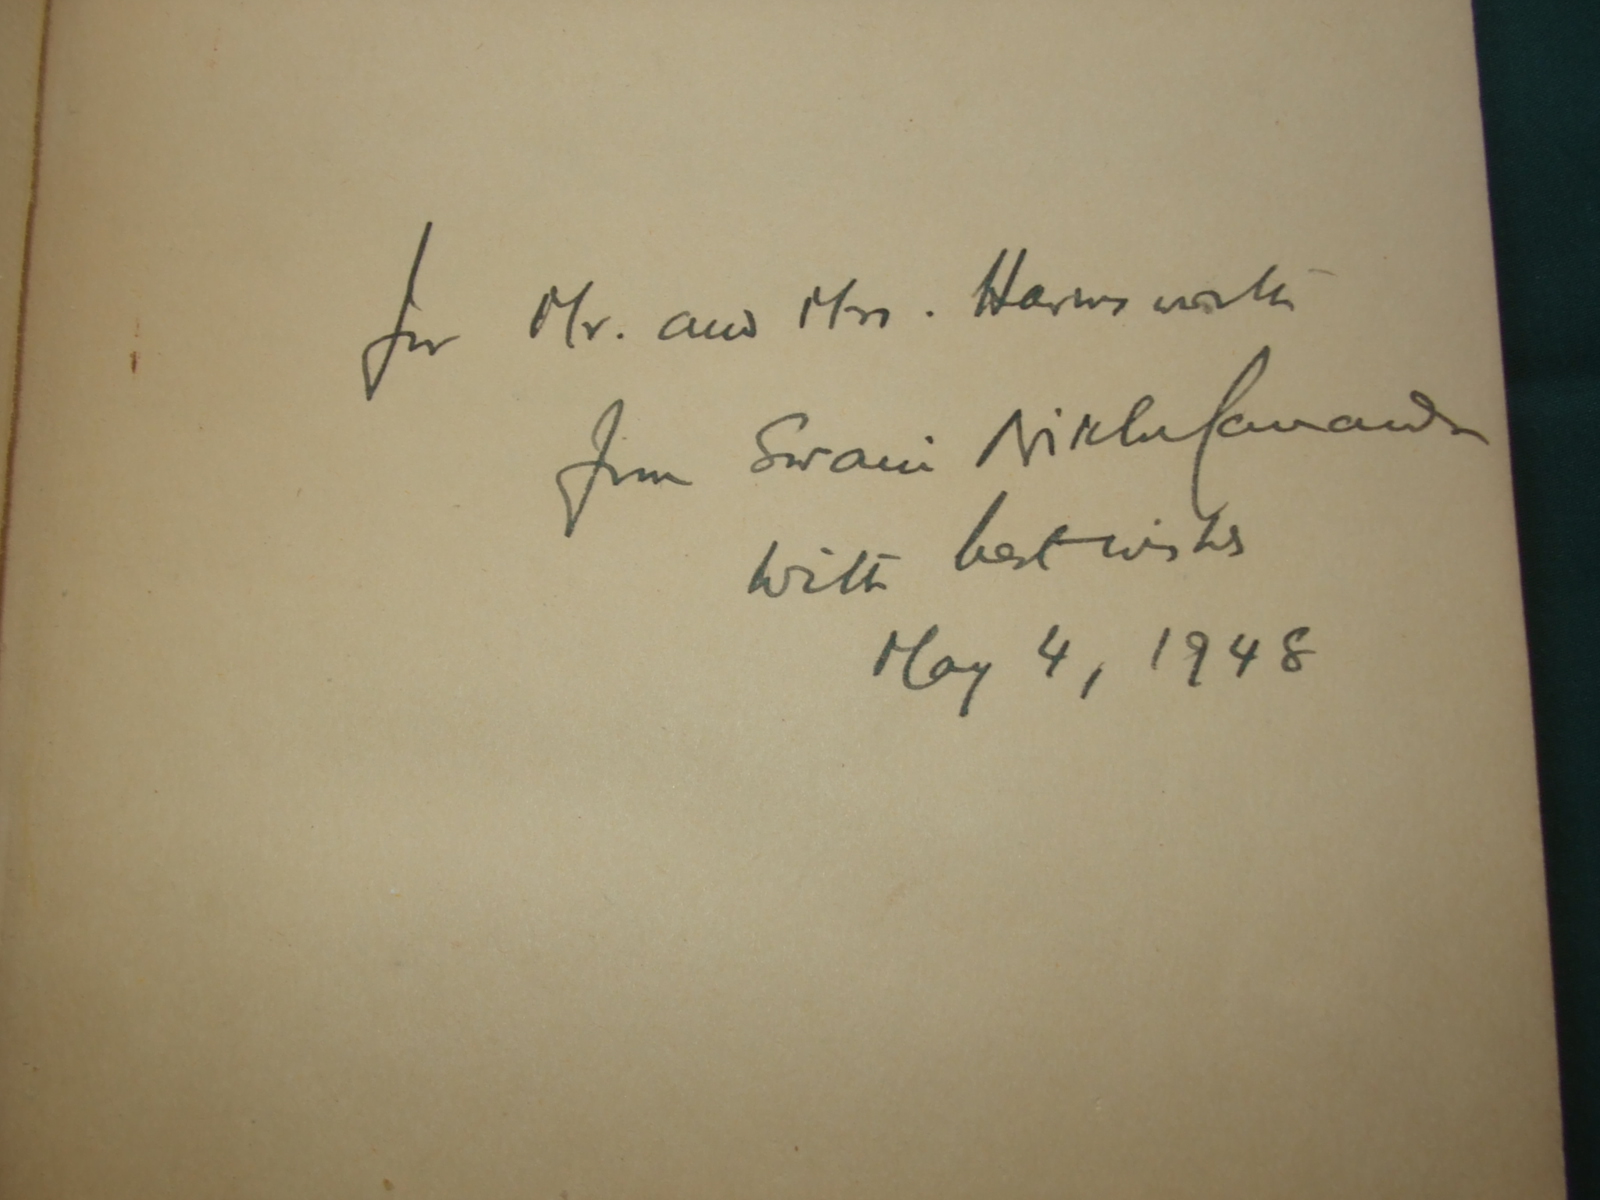 for Mr. and Mrs. Harmsworth
from Swami Nikhilananda
with best wishes
May 4, 1948